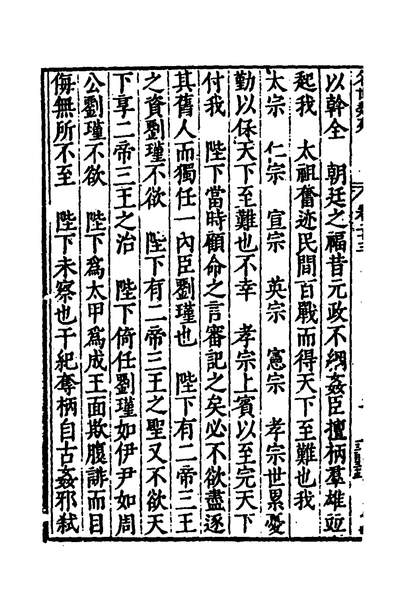 以幹全　朝廷之福昔元政不綱姦臣擅柄羣雄竝
起我　太祖奮迹民間百戰而得天下至難也我
太宗　仁宗　宣宗　英宗　憲宗　孝宗世累憂
勤以保天下至難也不幸　孝宗上賓以至完天下
付我　陛下當時顧命之言審記之矣必不欲盡逐
其舊人而獨任一內臣劉瑾也　陛下有二帝三王
之資劉瑾不欲　陛下有二帝三王之聖又不欲天
下享二帝三王之治　陛下倚任劉瑾如伊尹如周
公劉瑾不欲　陛下爲太甲爲成王面欺腹誹而目
侮無所不至　陛下未察也干紀奪柄自古姦邪弑